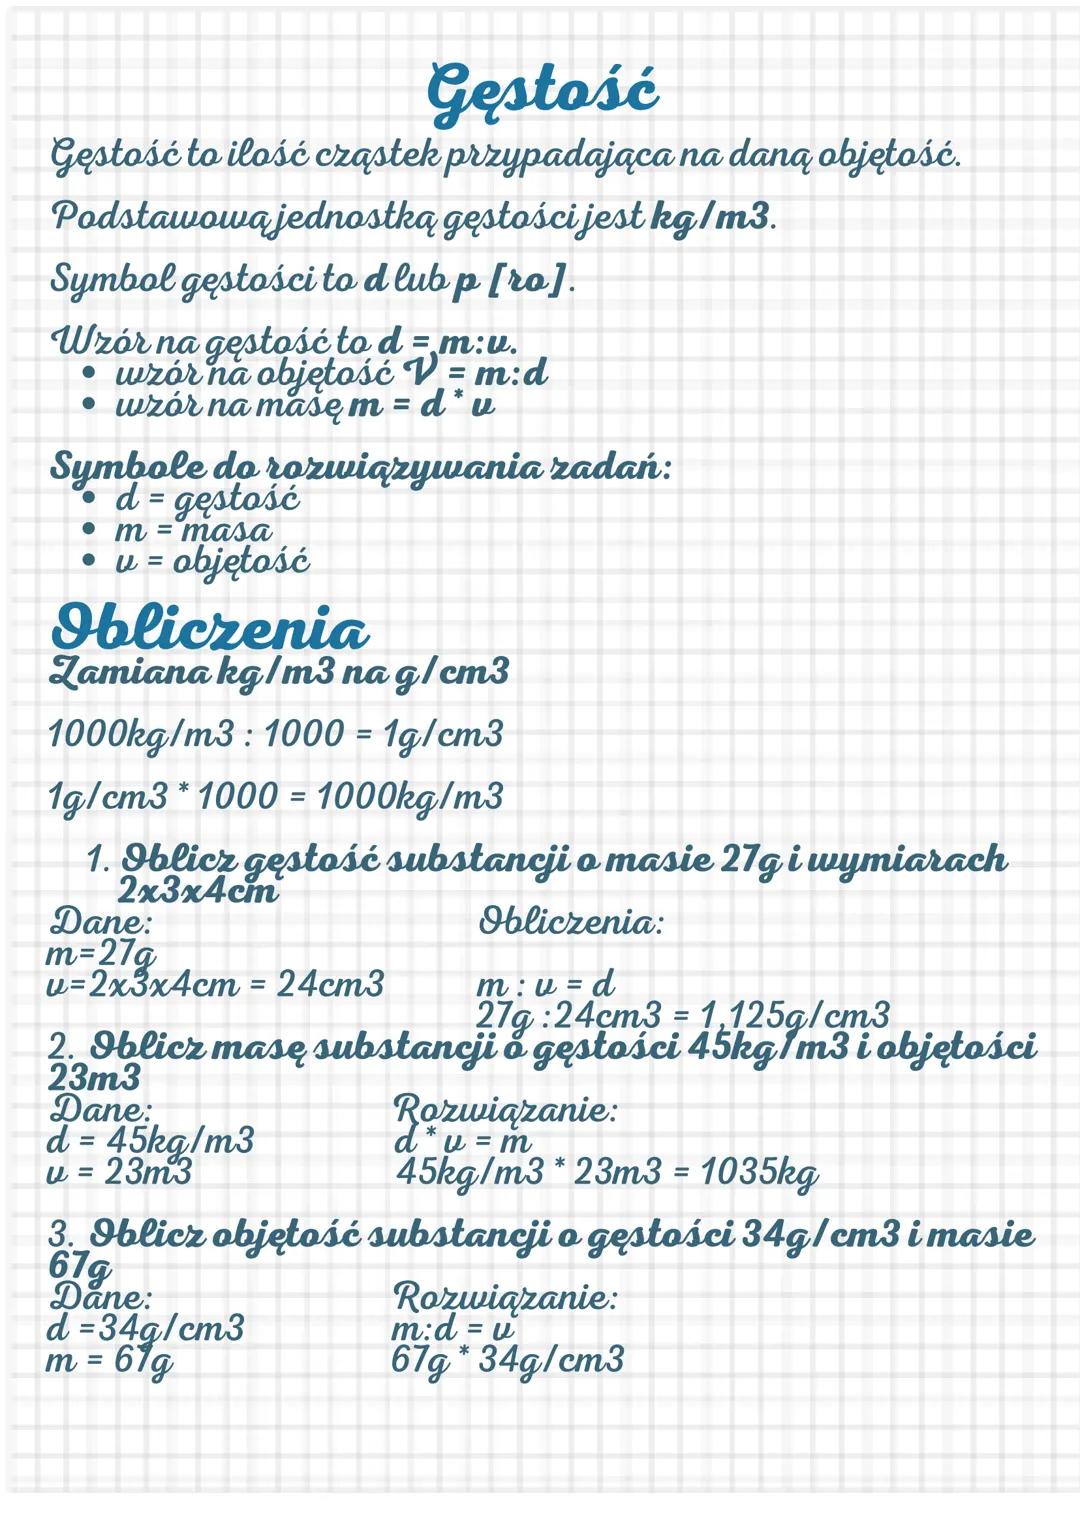 Gęstość
Gęstość to ilość cząstek przypadająca na daną objętość.
Podstawową jednostką gęstości jest kg/m3.
Symbol gęstości to d lub p [ro].
Wzór na gęstość to d = m:v.
• wzór na objętość V = m:d
• wzór na masę m = d * v
Symbole do rozwiązywania zadań:
• d = gęstość
• m = masa
• v = objętość
Obliczenia
Zamiana kg/m3 na g/cm3
1000kg/m3 : 1000 = 1g/cm3
1g/cm3 * 1000 = 1000kg/m3
1. Oblicz gęstość substancji o masie 27g i wymiarach
2x3x4cm
Dane: Obliczenia:
m=27g
v=2x3x4cm = 24cm3 m : v = d
27g :24cm3 = 1,125g/cm3
2. Oblicz masę substancji o gęstości 45kg/m3 i objętości
23m3
Dane: Rozwiązanie:
d = 45kg/m3 d * v = m
v = 23m3 45kg/m3 * 23m3 = 1035kg
3. Oblicz objętość substancji o gęstości 34g/cm3 i masie
67g
Dane: Rozwiązanie:
d =34g/cm3 m:d = v
m = 67g 67g * 34g/cm3